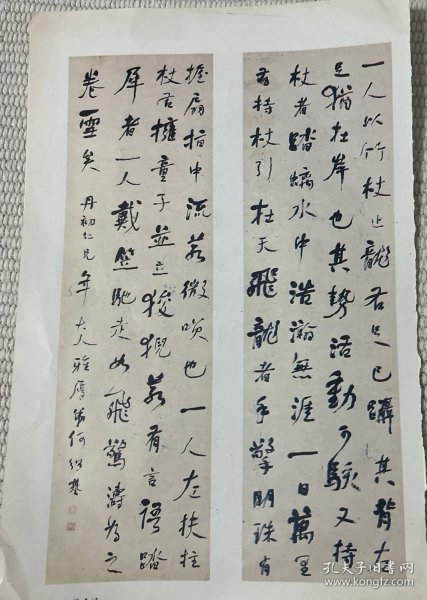 一人以竹杖止龍右足已躡其背左
足猶在岸也其勢活動可駭又持
杖者踏螭水中浩瀚無涯一日萬里
右持杖引在天飛龍者手擎明珠有
搖扇指中流若微哂也一人左扶拄
杖右擁童子並立狻猊若有言語踏
犀者一人戴笠馳走如飛驚濤為之
卷雪矣 丹初仁兄年大人雅屬弟何紹基
孔夫子旧书网
www.kongfz.com